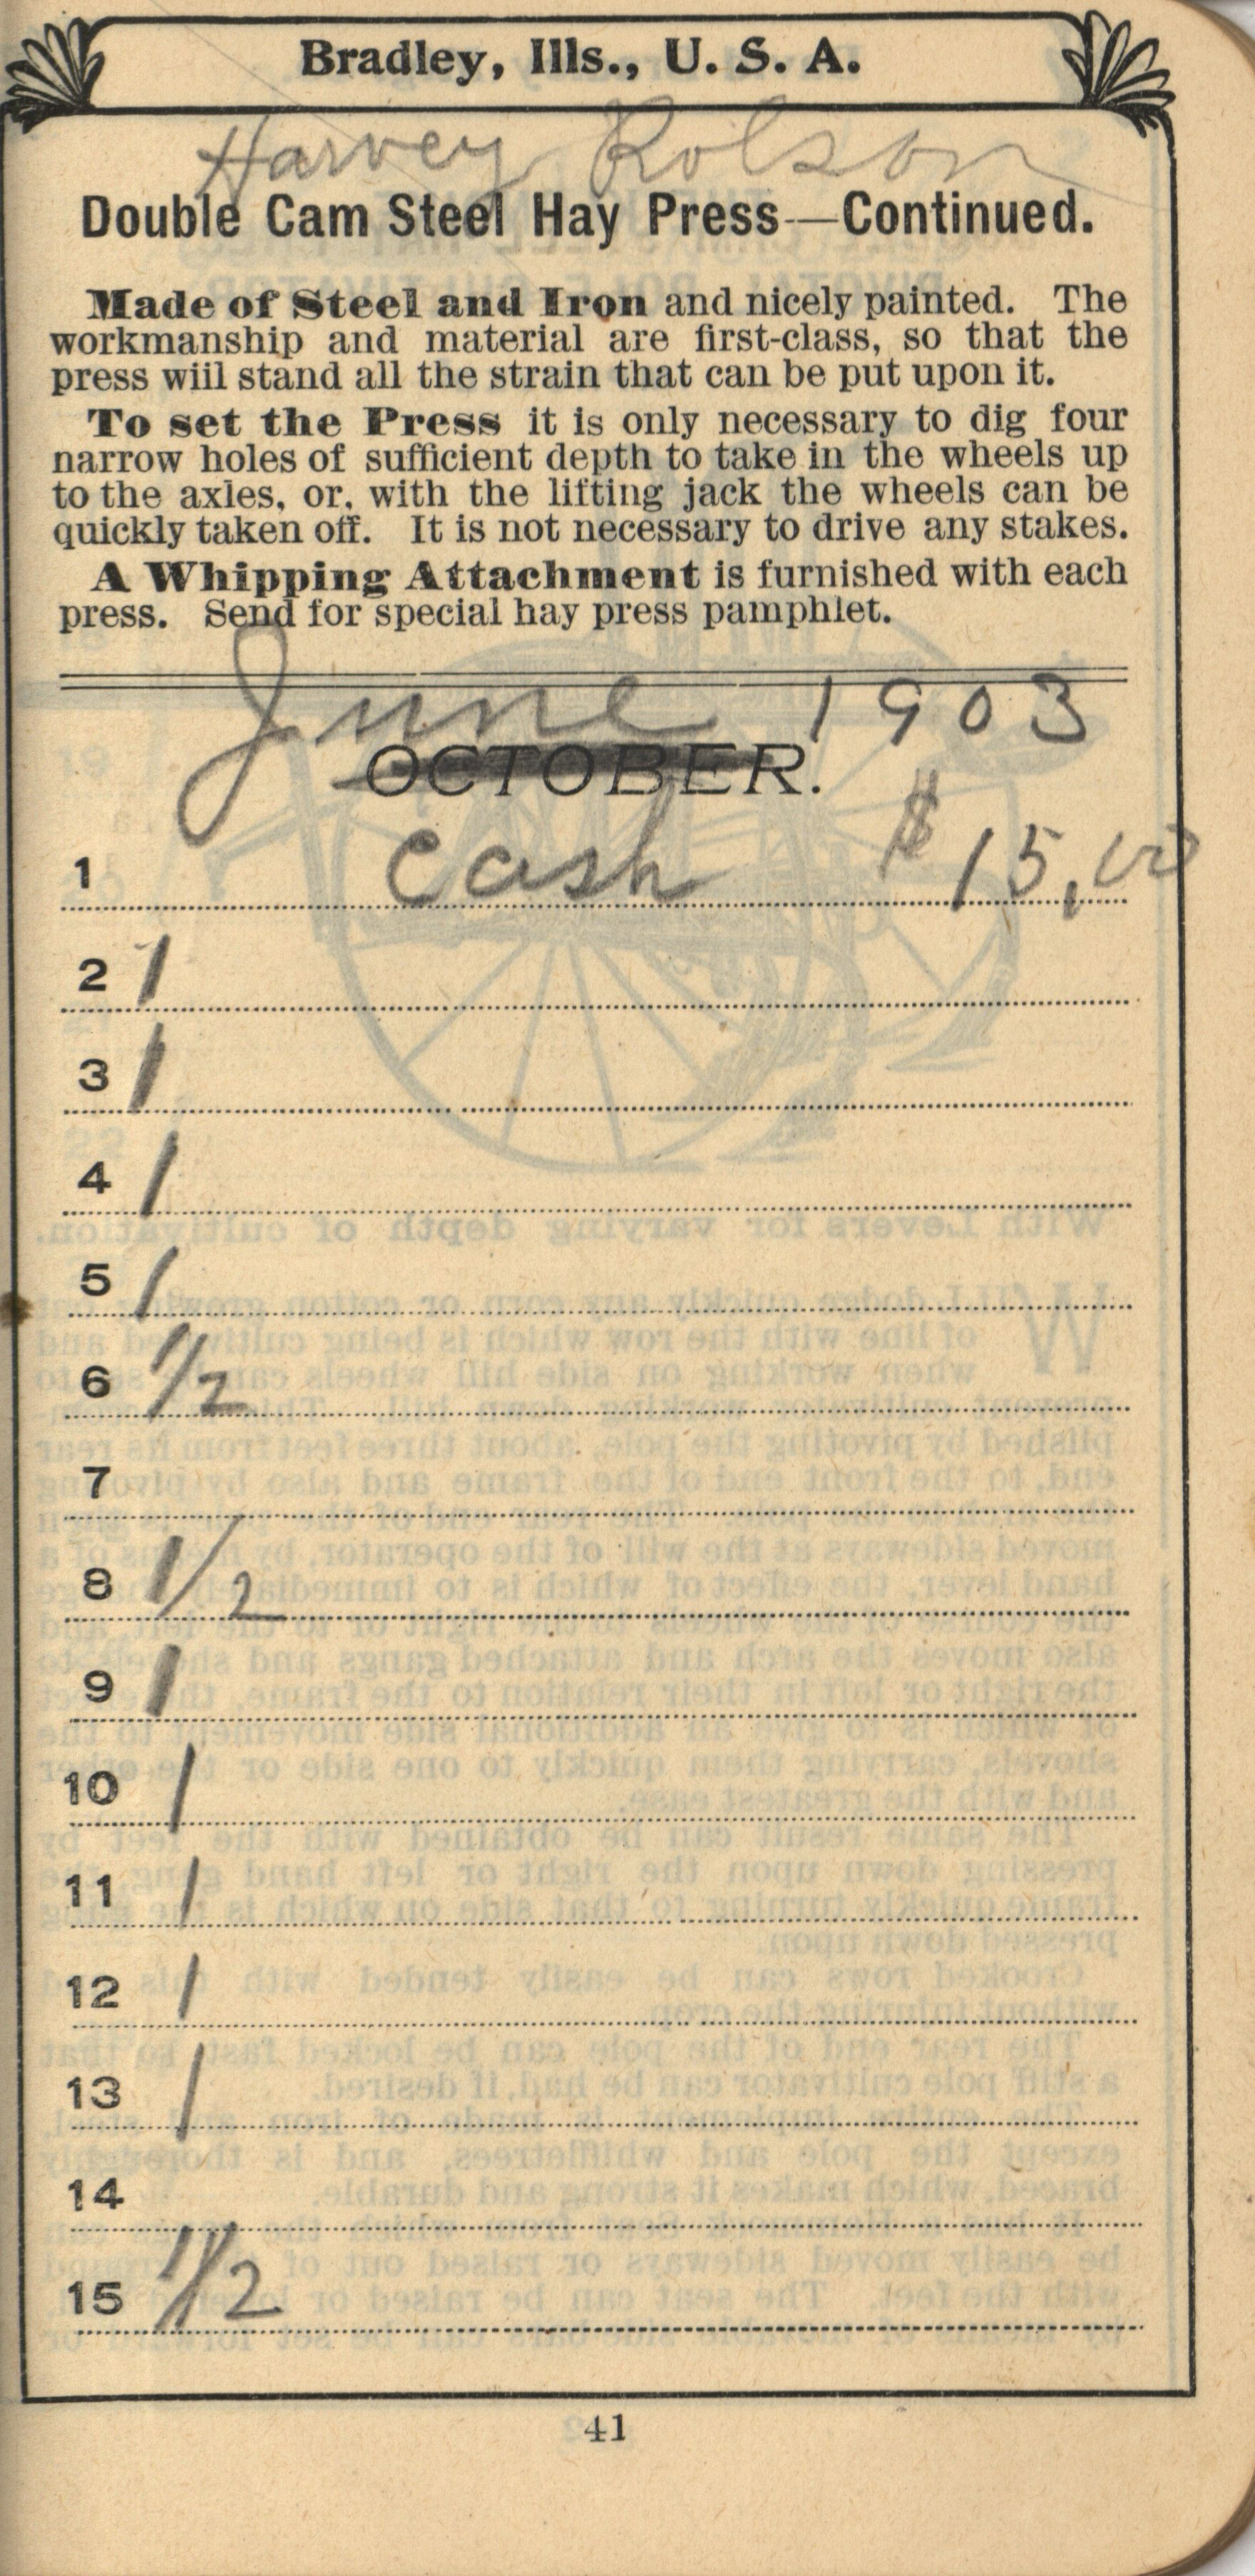 Bradley, Ills., U. S. A.
Harvey Rolson
Double Cam Steel Hay Press—Continued.
Made of Steel and Iron and nicely painted. The
workmanship and material are first-class, so that the
press wiil stand all the strain that can be put upon it.
To set the Press it is only necessary to dig four
narrow holes of sufficient depth to take in the wheels up
to the axles, or, with the lifting jack the wheels can be
quickly taken off. It is not necessary to drive any stakes.
A Whipping Attachment is furnished with each
press. Send for special hay press pamphlet.
June 1903
OCTOBER.
1 cash $15,00
2 1
3 1
4 1
5 1
6 1/2
7
8 1/2
9 1
10 1
11 1
12 1
13 1
14
15 1/2
41